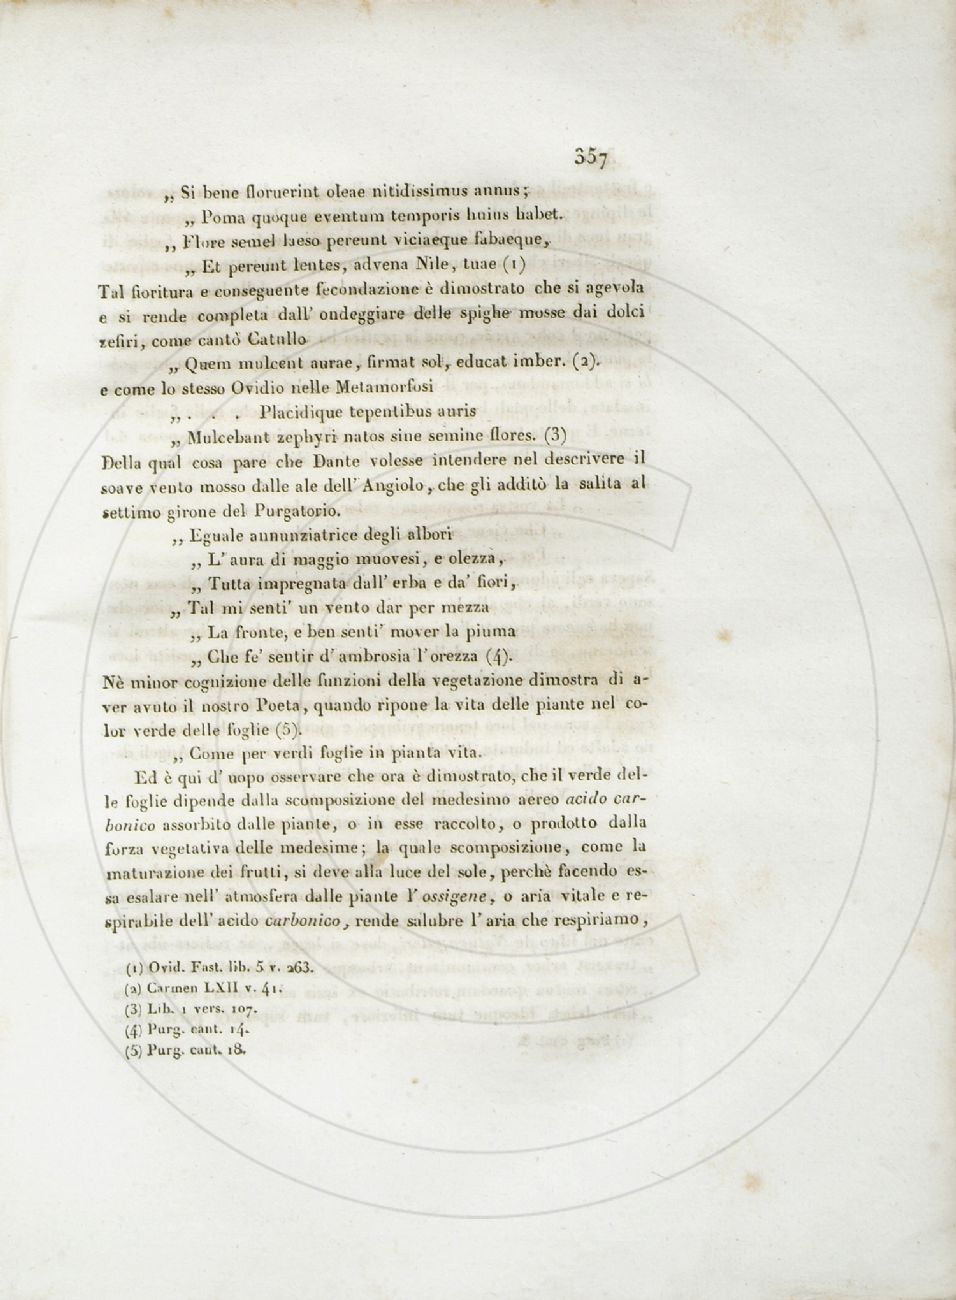 357
„ Si bene floruerint oleae nitidissimus annus;
„ Poma quoque eventum temporis huius habet.
„ Flore semel laeso pereunt viciaeque fabaeque,
„ Et pereunt lentes, advena Nile, tuae (1)
Tal fioritura e conseguente fecondazione è dimostrato che si agevola
e si rende completa dall' ondeggiare delle spighe mosse dai dolci
zefiri, come cantò Catullo
„ Quem mulcent aurae, firmat sol, educat imber. (2).
e come lo stesso Ovidio nelle Metamorfosi
„ . . . Placidique tepentibus auris
„ Mulcebant zephyri natos sine semine flores. (3)
Della qual cosa pare che Dante volesse intendere nel descrivere il
soave vento mosso dalle ale dell' Angiolo, che gli additò la salita al
settimo girone del Purgatorio.
„ Eguale annunziatrice degli albori
„ L' aura di maggio muovesi, e olezza,
„ Tutta impregnata dall' erba e da' fiori,
„ Tal mi senti' un vento dar per mezza
„ La fronte, e ben senti' mover la piuma
„ Che fe' sentir d' ambrosia l'orezza (4).
Nè minor cognizione delle funzioni della vegetazione dimostra di a-
ver avuto il nostro Poeta, quando ripone la vita delle piante nel co-
lor verde delle foglie (5).
„ Come per verdi foglie in pianta vita.
Ed è qui d' uopo osservare che ora è dimostrato, che il verde del-
le foglie dipende dalla scomposizione del medesimo aereo acido car-
bonico assorbito dalle piante, o in esse raccolto, o prodotto dalla
forza vegetativa delle medesime; la quale scomposizione, come la
maturazione dei frutti, si deve alla luce del sole, perchè facendo es-
sa esalare nell' atmosfera dalle piante l' ossigene, o aria vitale e re-
spirabile dell' acido carbonico, rende salubre l' aria che respiriamo,
(1) Ovid. Fast. lib. 5 v. 263.
(2) Carmen LXII v. 41.
(3) Lib. 1 vers. 107.
(4) Purg. cant. 14.
(5) Purg. cant. 18.